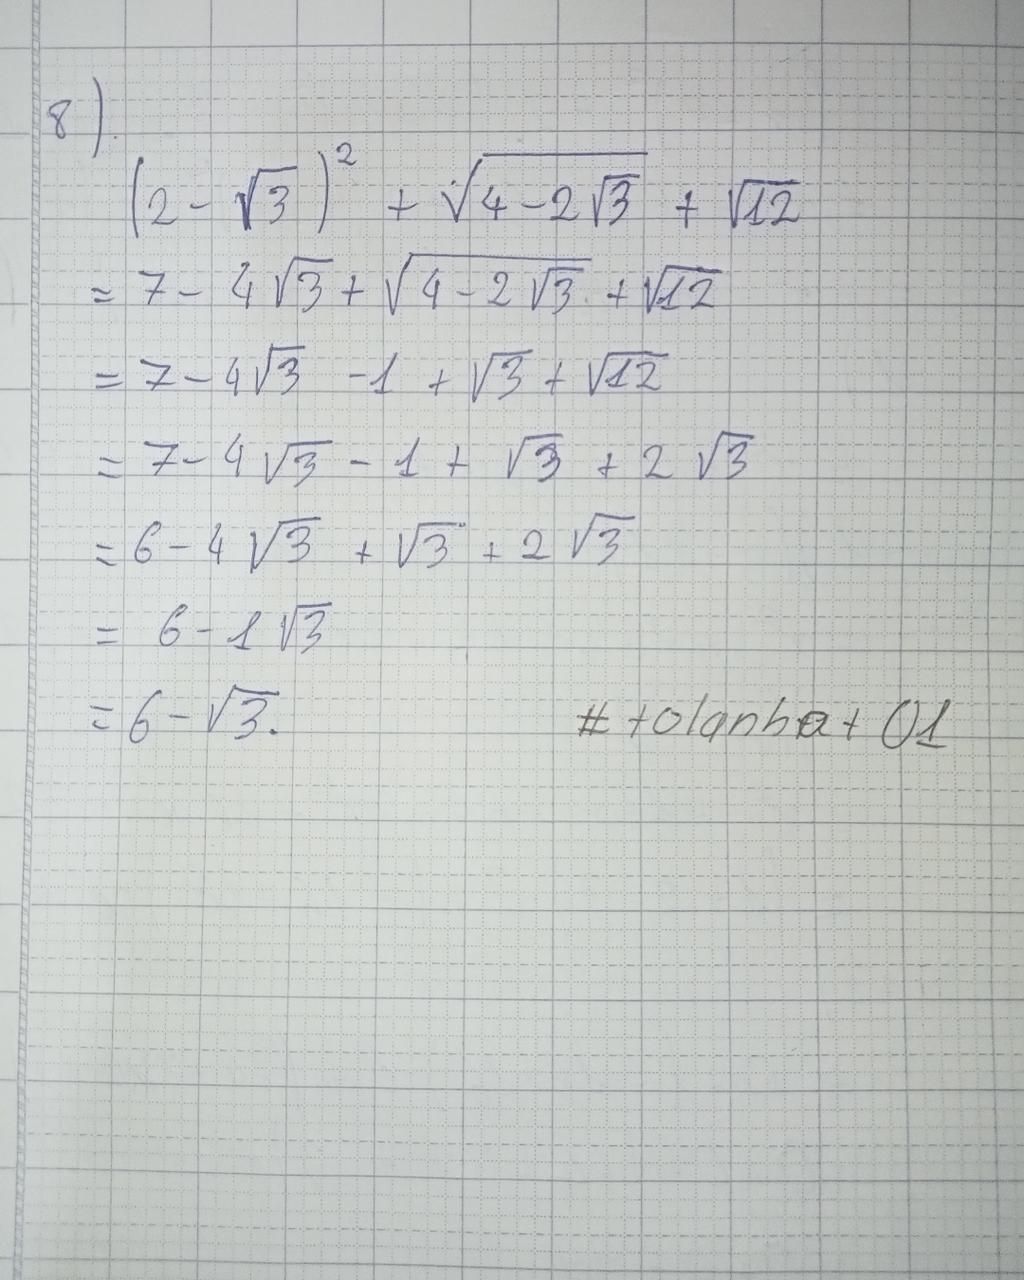 8).
(2-√3)² + √(4-2√3) + √12
= 7-4√3+√(4-2√3) +√12
= 7-4√3 -1 + √3 + √12
= 7-4√3 - 1 + √3 + 2√3
= 6-4√3 + √3 + 2√3
= 6-1√3
= 6-√3.
#tolanbat01